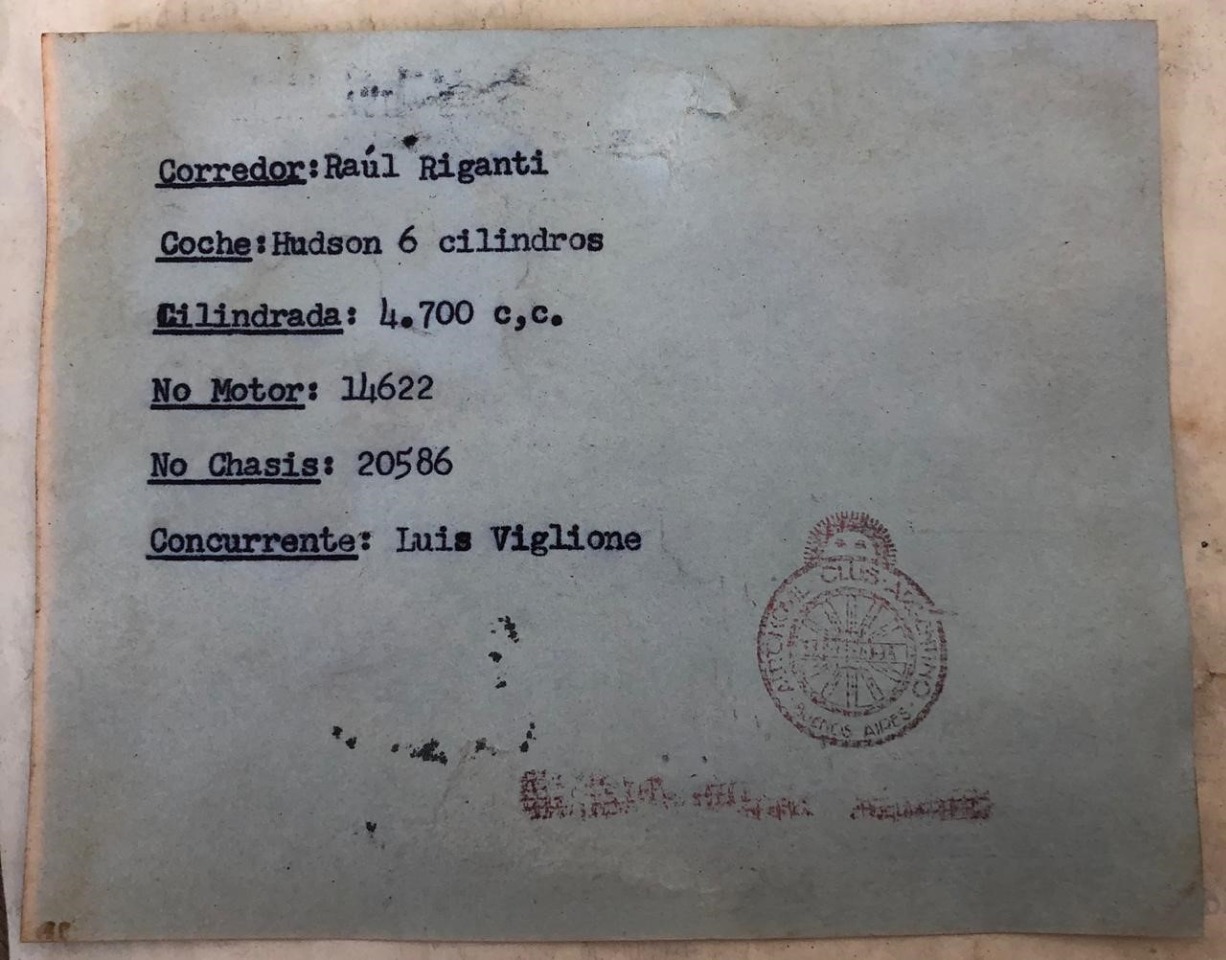 Corredor:Raúl Riganti
Coche:Hudson 6 cilindros
Cilindrada: 4.700 c,c.
No Motor: 14622
No Chasis: 20586
Concurrente: Luis Viglione
AUTOMOVIL CLUB ARGENTINO
BUENOS AIRES